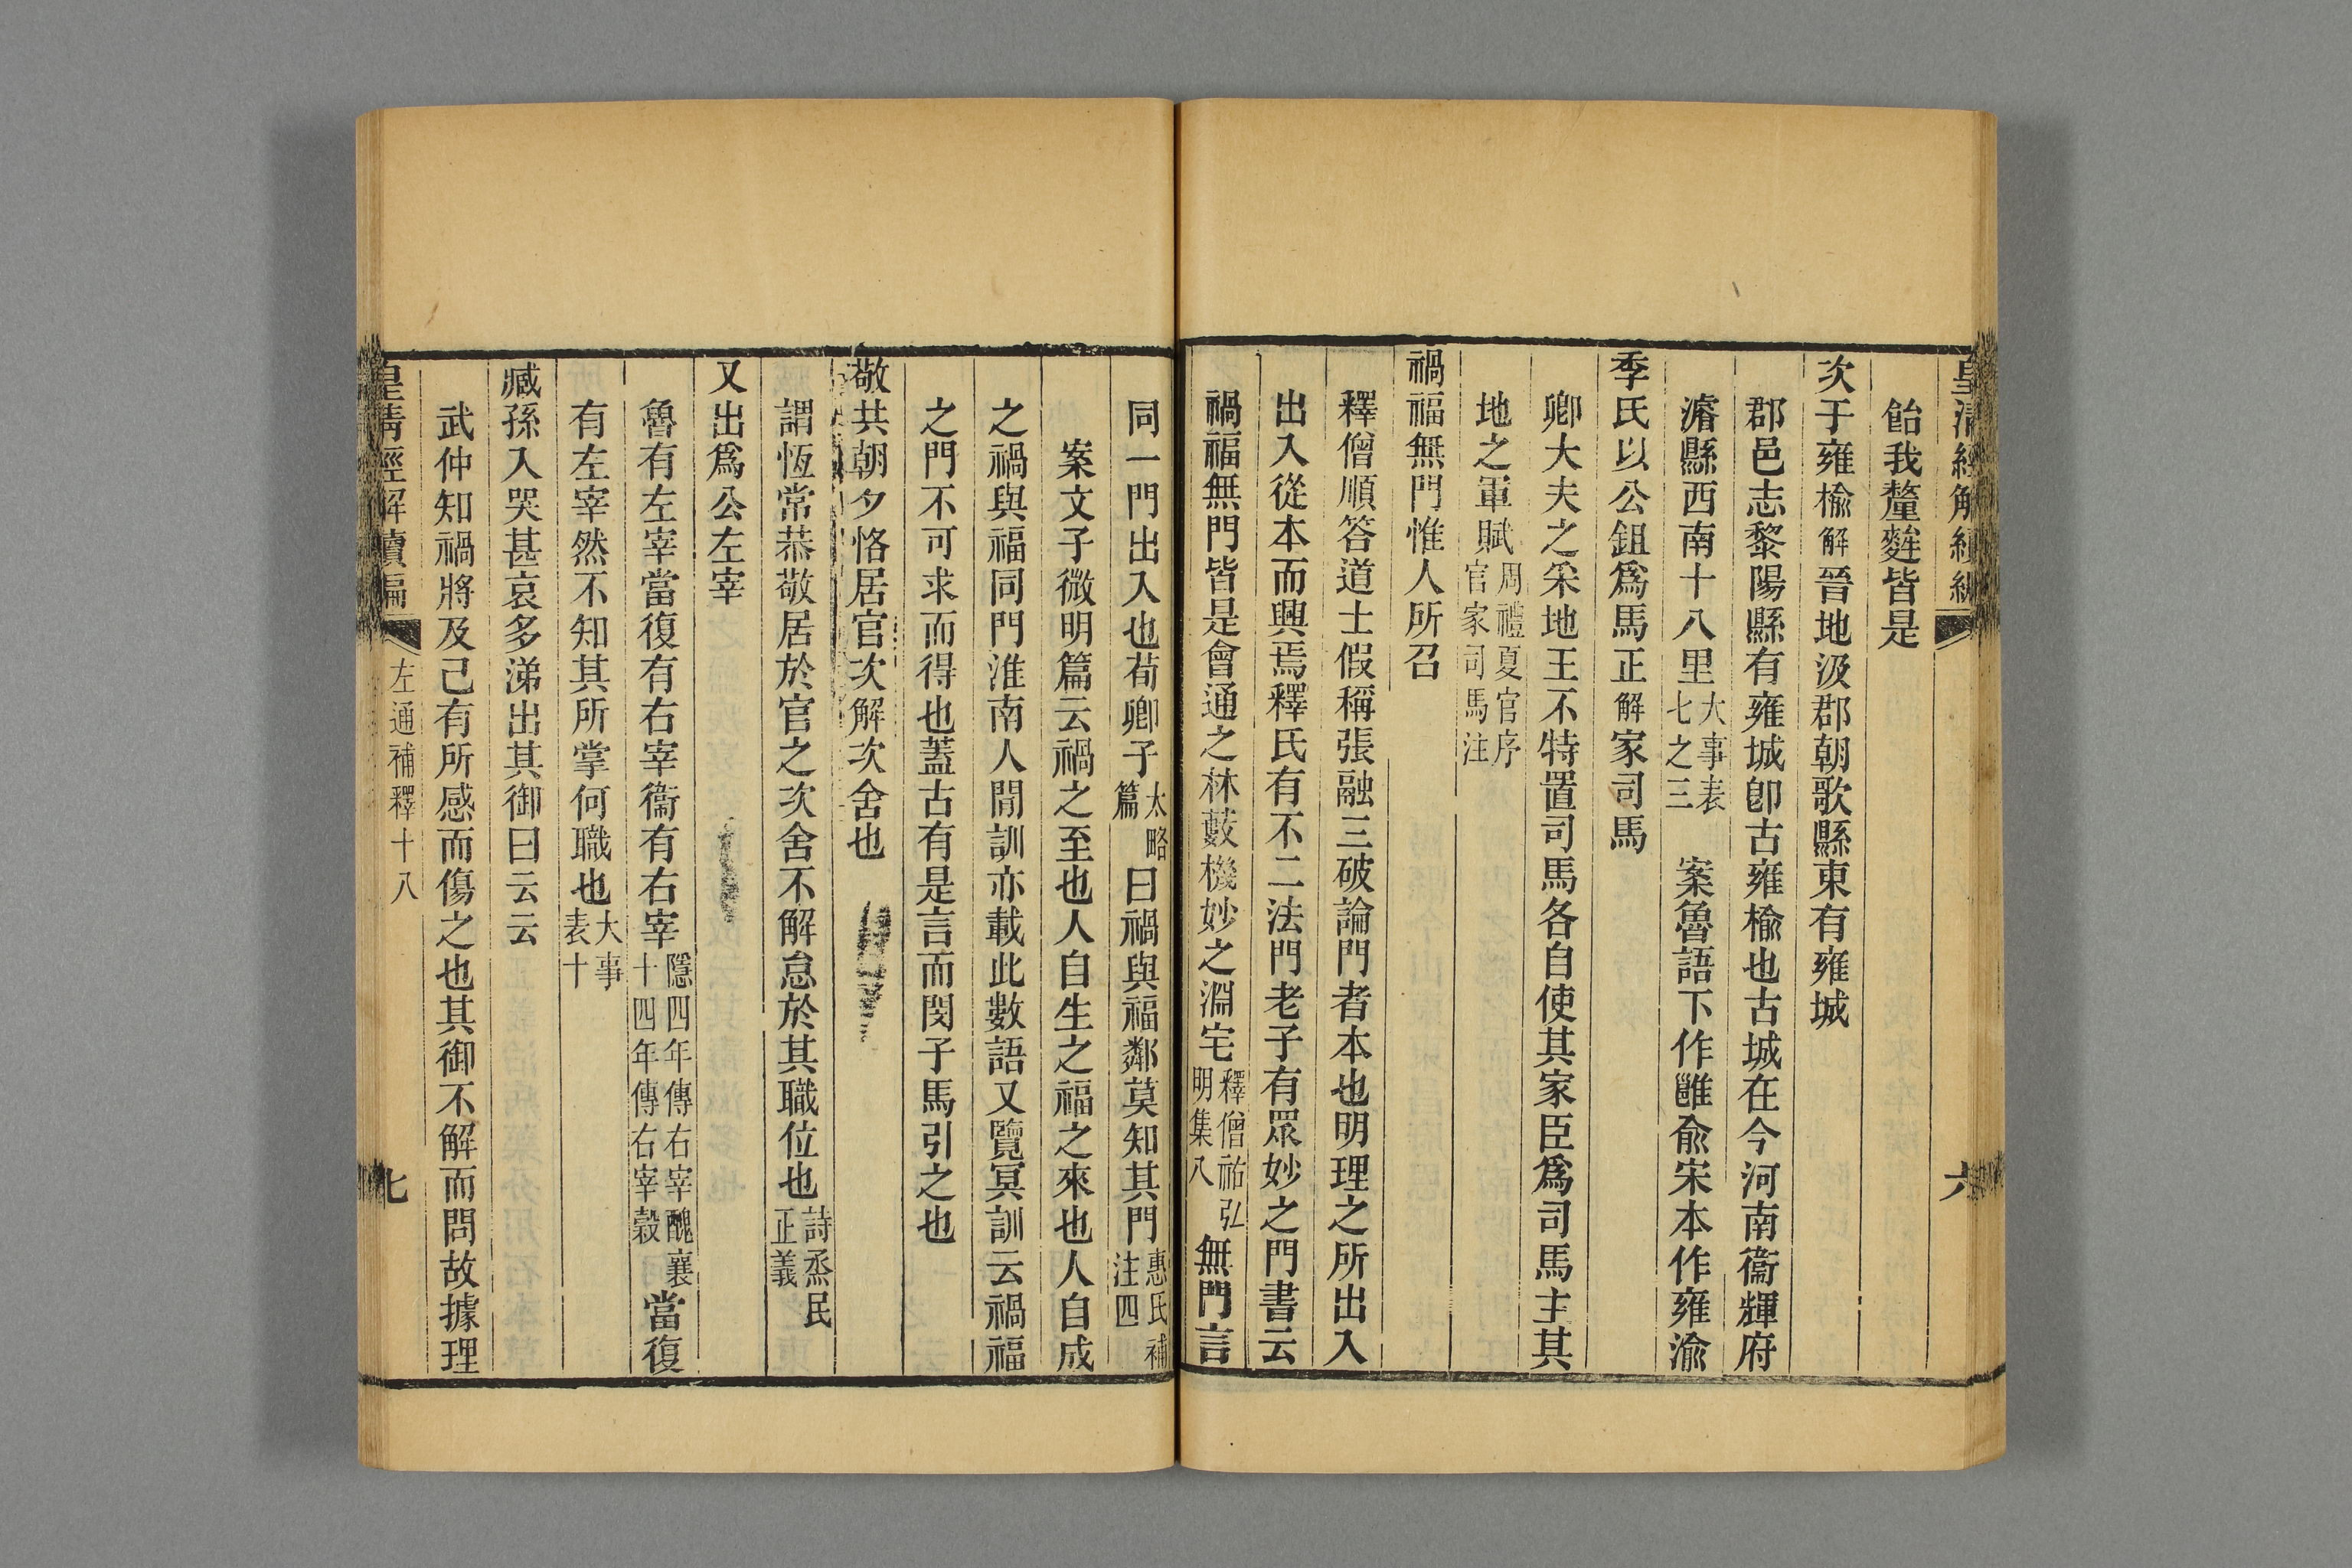 皇清經解續編
六
飴我釐麰皆是
次于雍榆解晉地汲郡朝歌縣東有雍城
郡邑志黎陽縣有雍城卽古雍榆也古城在今河南衞輝府
濬縣西南十八里大事表七之三 案魯語下作雝兪宋本作雍渝
季氏以公鉏爲馬正解家司馬
卿大夫之采地王不特置司馬各自使其家臣爲司馬主其
地之軍賦周禮夏官序官家司馬注
禍福無門惟人所召
釋僧順答道士假稱張融三破論門者本也明理之所出入
出入從本而興焉釋氏有不二法門老子有眾妙之門書云
禍福無門皆是會通之林藪機妙之淵宅釋僧祐弘明集八無門言
同一門出入也荀卿子大略篇曰禍與福鄰莫知其門惠氏補注四
案文子微明篇云禍之至也人自生之福之來也人自成
之禍與福同門淮南人閒訓亦載此數語又覽冥訓云禍福
之門不可求而得也蓋古有是言而閔子馬引之也
敬共朝夕恪居官次解次舍也
謂恆常恭敬居於官之次舍不解怠於其職位也詩烝民正義
又出爲公左宰
魯有左宰當復有右宰衞有右宰隱四年傳右宰醜襄十四年傳右宰穀當復
有左宰然不知其所掌何職也大事表十
臧孫入哭甚哀多涕出其御曰云云
武仲知禍將及己有所感而傷之也其御不解而問故據理
皇清經解續編
左通補釋十八
七